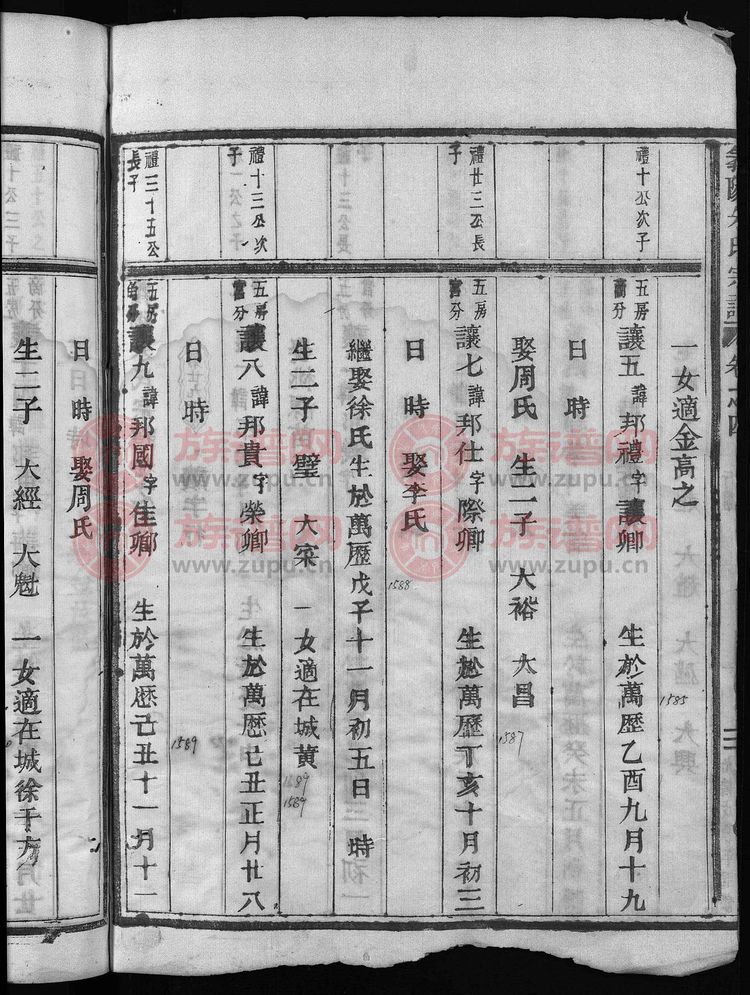 氏宗譜 卷之四
禮十公次子
禮廿三公長
子
禮十三公次
子
禮三十五公
長子
一女適金高之
五房
讓五 諱邦禮 字讓卿 生於萬歷乙酉九月十九
1585
日 時
娶周氏 生二子 大裕 大昌
五房
富分
讓七 諱邦仕 字際卿 生於萬歷丁亥十月初三
1587
日 時 娶李氏
1588
繼娶徐氏 生於萬歷戊子十一月初五日 時
生二子 璧 大寀 一女適在城黃
1589
1589
五房
富分
讓八 諱邦貴 字榮卿 生於萬歷己丑正月廿八
日 時
1589
五房
讓九 諱邦國 字佳卿 生於萬歷己丑十一月十一
日 時 娶周氏
生二子 大經 大魁 一女適在城徐于方
族譜网
www.zupu.cn
族譜网
www.zupu.cn
族譜网
www.zupu.cn
族譜网
www.zupu.cn